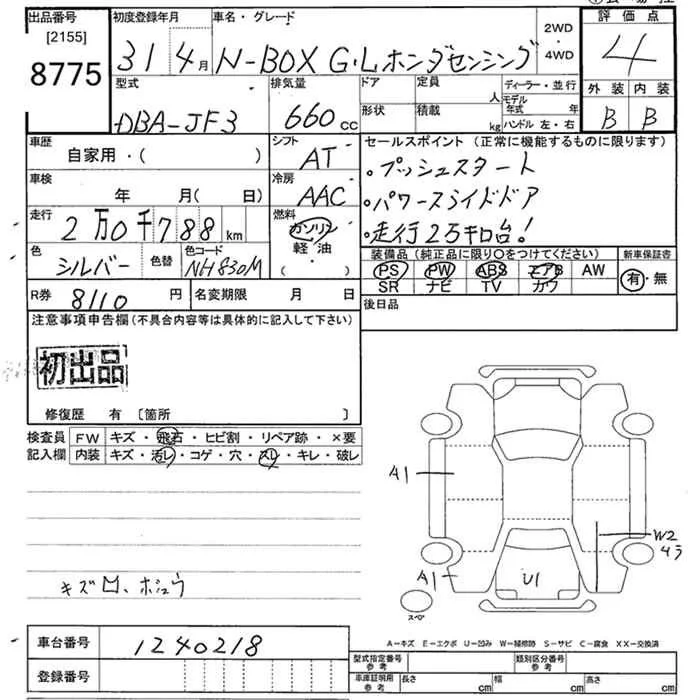 出品番号 初度登録年月 車名・グレード 2WD・4WD 評価点
[2155]
8775 31 4月 N-BOX G・Lホンダセンシング 4
型式 排気量 ドア 定員 人 ディーラー・並行 外装 内装
DBA-JF3 660cc 形状 積載 kg モデル年式 年 ハンドル 左・右 B B
車歴 シフト セールスポイント (正常に機能するものに限ります)
自家用・( ) AT ・プッシュスタート
車検 冷房
年 月(日) AAC ・パワースライドドア
走行 燃料
2万0千788km ガソリン ・走行2万キロ台!
色 色替 色コード 軽油 装備品 (純正品に限り○をつけてください) 新車保証書
シルバー NH830M ・( ) PS PW ABS エアB AW 有・無
R券 8110円 名変期限 月 日 SR ナビ TV カワ
後日品
注意事項申告欄 (不具合内容等は具体的に記入して下さい)
初出品
修復歴 有 [箇所 ]
検査員 FW キズ・飛石・ヒビ割・リペア跡・×要
記入欄 内装 キズ・汚レ・コゲ・穴・スレ・キレ・破レ
A1
W2
A1 U1
キズ凹、ホシュウ
スペア
A-キズ E-エクボ U-凹み W-補修跡 S-サビ C-腐食 XX-交換済
車台番号 1240218
型式指定番号 参考 類別区分番号 参考
登録番号 車庫証明用 参考 長さ cm 幅 cm 高さ cm